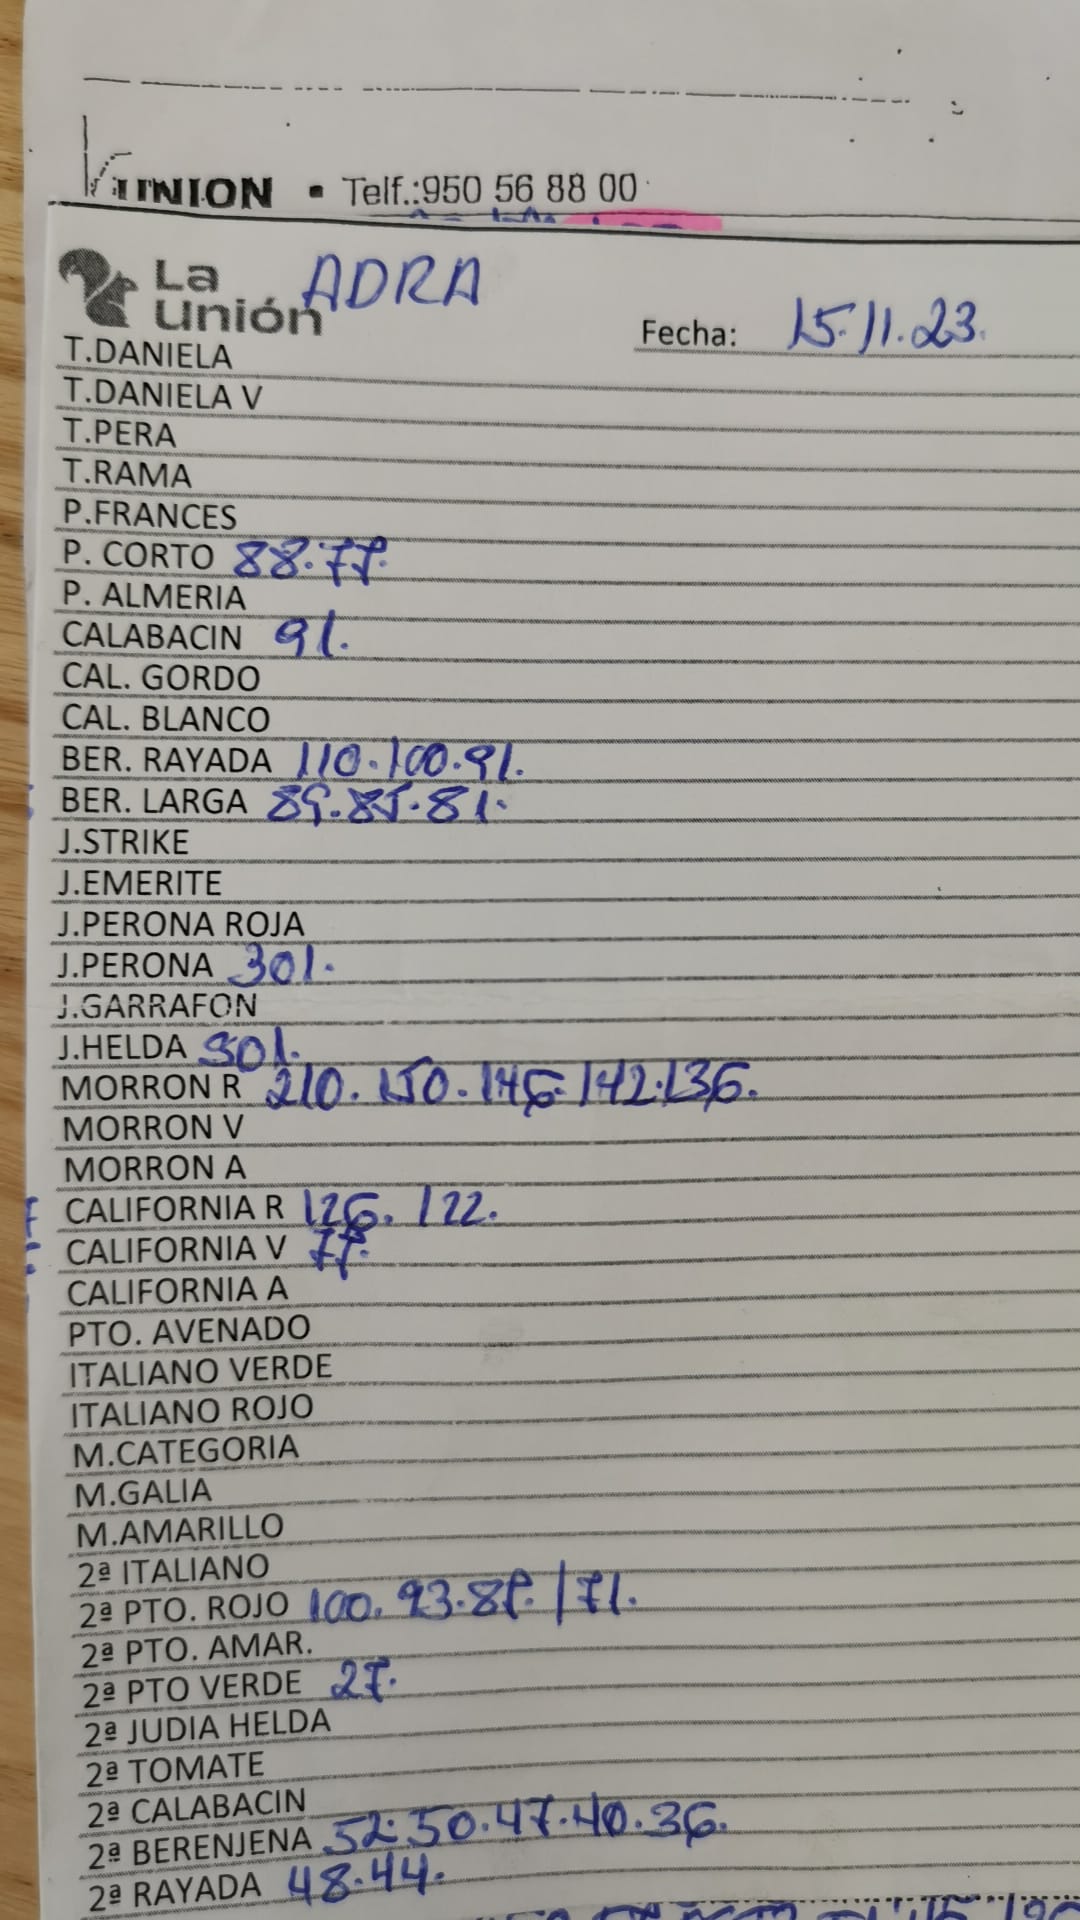 UNION • Telf.:950 56 88 00
La Unión ADRA
Fecha: 15.11.23.
T.DANIELA
T.DANIELA V
T.PERA
T.RAMA
P.FRANCES
P. CORTO 88.77.
P. ALMERIA
CALABACIN 91.
CAL. GORDO
CAL. BLANCO
BER. RAYADA 110.100.91.
BER. LARGA 89.85.81.
J.STRIKE
J.EMERITE
J.PERONA ROJA
J.PERONA 301.
J.GARRAFON
J.HELDA 301.
MORRON R 210.150.146.142.136.
MORRON V
MORRON A
CALIFORNIA R 126.122.
CALIFORNIA V 77.
CALIFORNIA A
PTO. AVENADO
ITALIANO VERDE
ITALIANO ROJO
M.CATEGORIA
M.GALIA
M.AMARILLO
2ª ITALIANO
2ª PTO. ROJO 100.93.87./71.
2ª PTO. AMAR.
2ª PTO VERDE 27.
2ª JUDIA HELDA
2ª TOMATE
2ª CALABACIN
2ª BERENJENA 52.50.47.40.36.
2ª RAYADA 48.44.